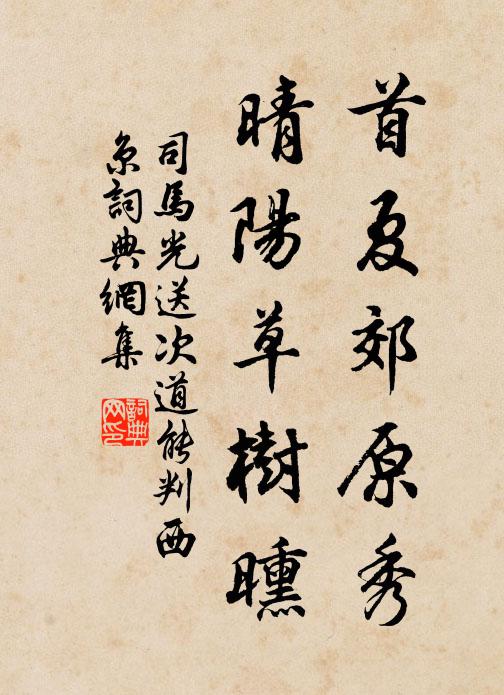 首夏郊原秀
晴陽草樹曛
司馬光送次道能判西
京詞典網集
詞典
网印